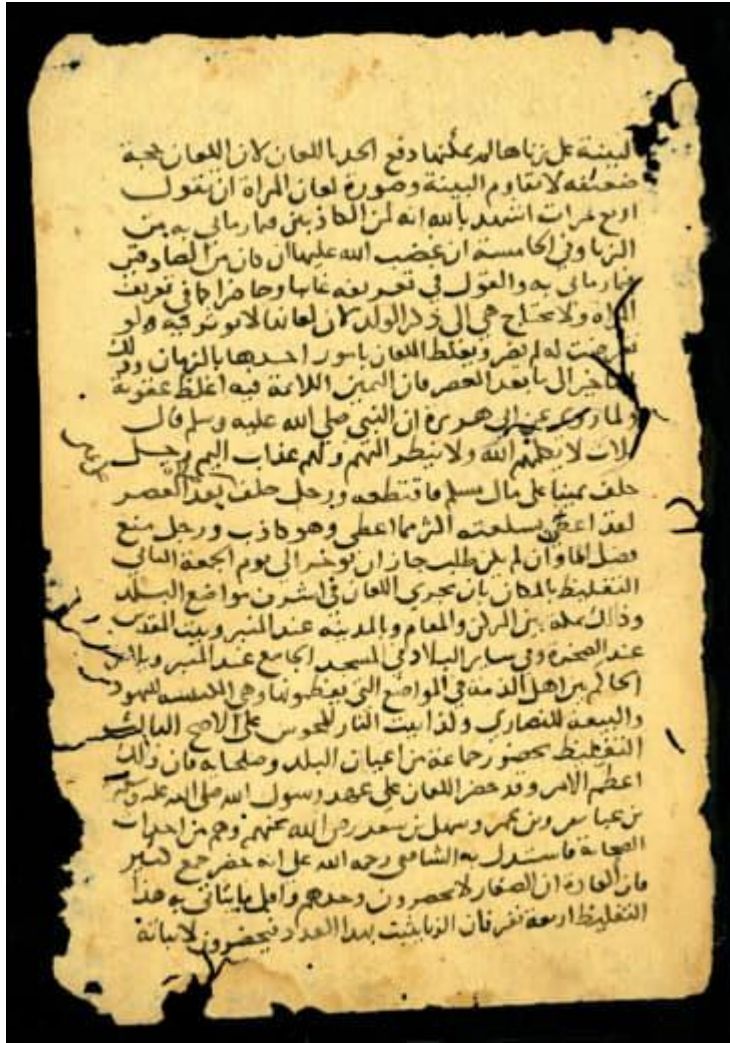 البينة على زناها لم يمكنها دفع الحد باللعان لان اللعان حجة
ضعيفه لا تقاوم البينة وصورة لعان المراة ان تقول
اربع مرات اشهد بالله انه لمن الكاذبين فيما رماني به من
الزنا وفي الخامسة ان غضب الله عليها ان كان من الصادقين
فيما رماني به والقول في تعريفه غايبا وحاضرا كما في تعريف
المراة ولا تحتاج هي الى ذكر الولد لان لعانها لا يوثر فيه ولو
تعرضت له لم يضر ويغلظ اللعان بامور احدها بالزمان وذلك
بالتاخير الى ما بعد العصر فان اليمين الاثمة فيه اغلظ عقوبة
ولما روي عن ابي هريرة ان النبي صلى الله عليه وسلم قال
ثلاث لا يكلمهم الله ولا ينظر اليهم ولهم عذاب اليم رجل
حلف يمينا على مال مسلم فاقتطعه ورجل حلف بعد العصر
لقد اعطي بسلعته اكثر مما اعطى وهو كاذب ورجل منع
فضل الماء وان لم يكن طلب جاز ان يوخر الى يوم الجمعة الثاني
التغليظ بالمكان بان يجري اللعان في اشرف مواضع البلد
وذلك بمكة بين الركن والمقام وبالمدينه عند المنبر وبيت المقدس
عند الصخرة وفي ساير البلاد في المسجد الجامع عند المنبر ويلاعن
الحاكم بين اهل الذمة في المواضع التي يعظمونها وهي الكنيسه لليهود
والبيعة للنصارى وكذا بيت النار للمجوس على الاصح الثالث
التغليظ بحضور جماعة من اعيان البلد وصلحايه فان ذلك
اعظم الامر وقد حضر اللعان على عهد رسول الله صلى الله عليه وسلم
بن عباس وبن عمر وسهل بن سعد رضي الله عنهم وهم من احداث
الصحابة فاستدل به الشافعي رحمه الله على انه حضر جمع كثير
فان العادة ان الصغار لا يحضرون وحدهم واقل ما يتاتى به هذا
التغليظ اربعة نفر فان الزنا يثبت بهذا العدد فيحضرون لاثباته